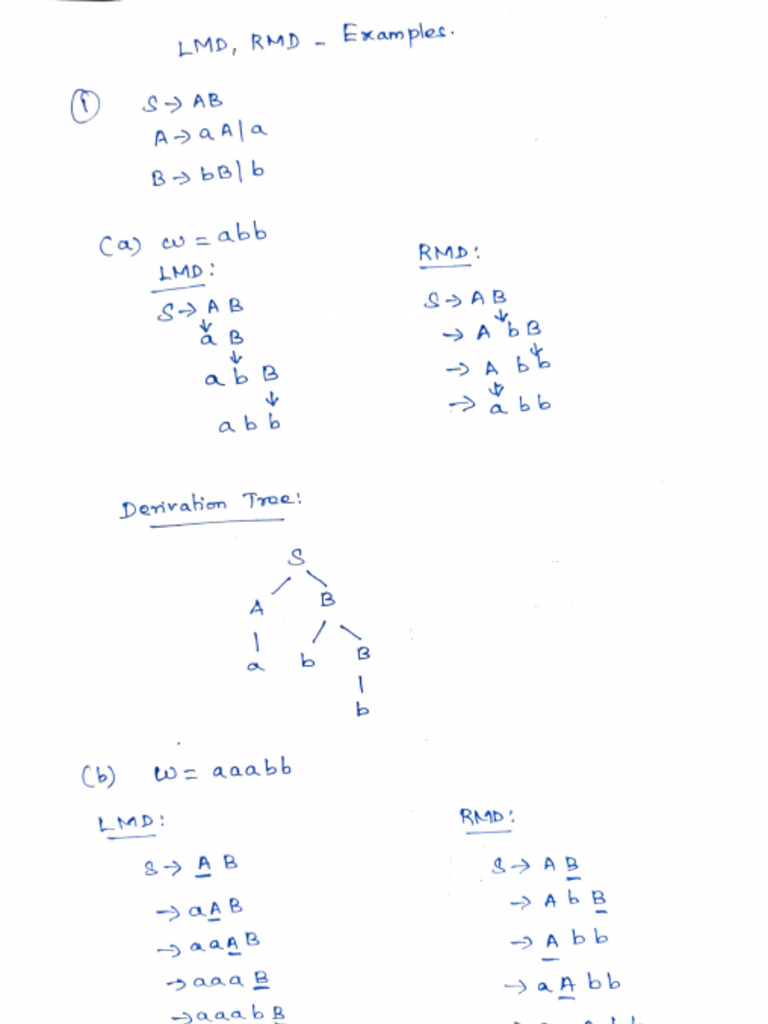 LMD, RMD - Examples.
① S → AB
A → aA|a
B → bB|b
(a) w = abb
LMD:
S → A B
↓
a B
↓
a b B
↓
a b b
RMD:
S → A B
↓
→ A b B
↓
→ A b b
↓
→ a b b
Derivation Tree:
S
A B
a b B
b
(b) w = aaabb
LMD:
S → A B
→ aAB
→ aaAB
→ aaa B
→ aaab B
RMD:
S → A B
→ A b B
→ A b b
→ a A bb